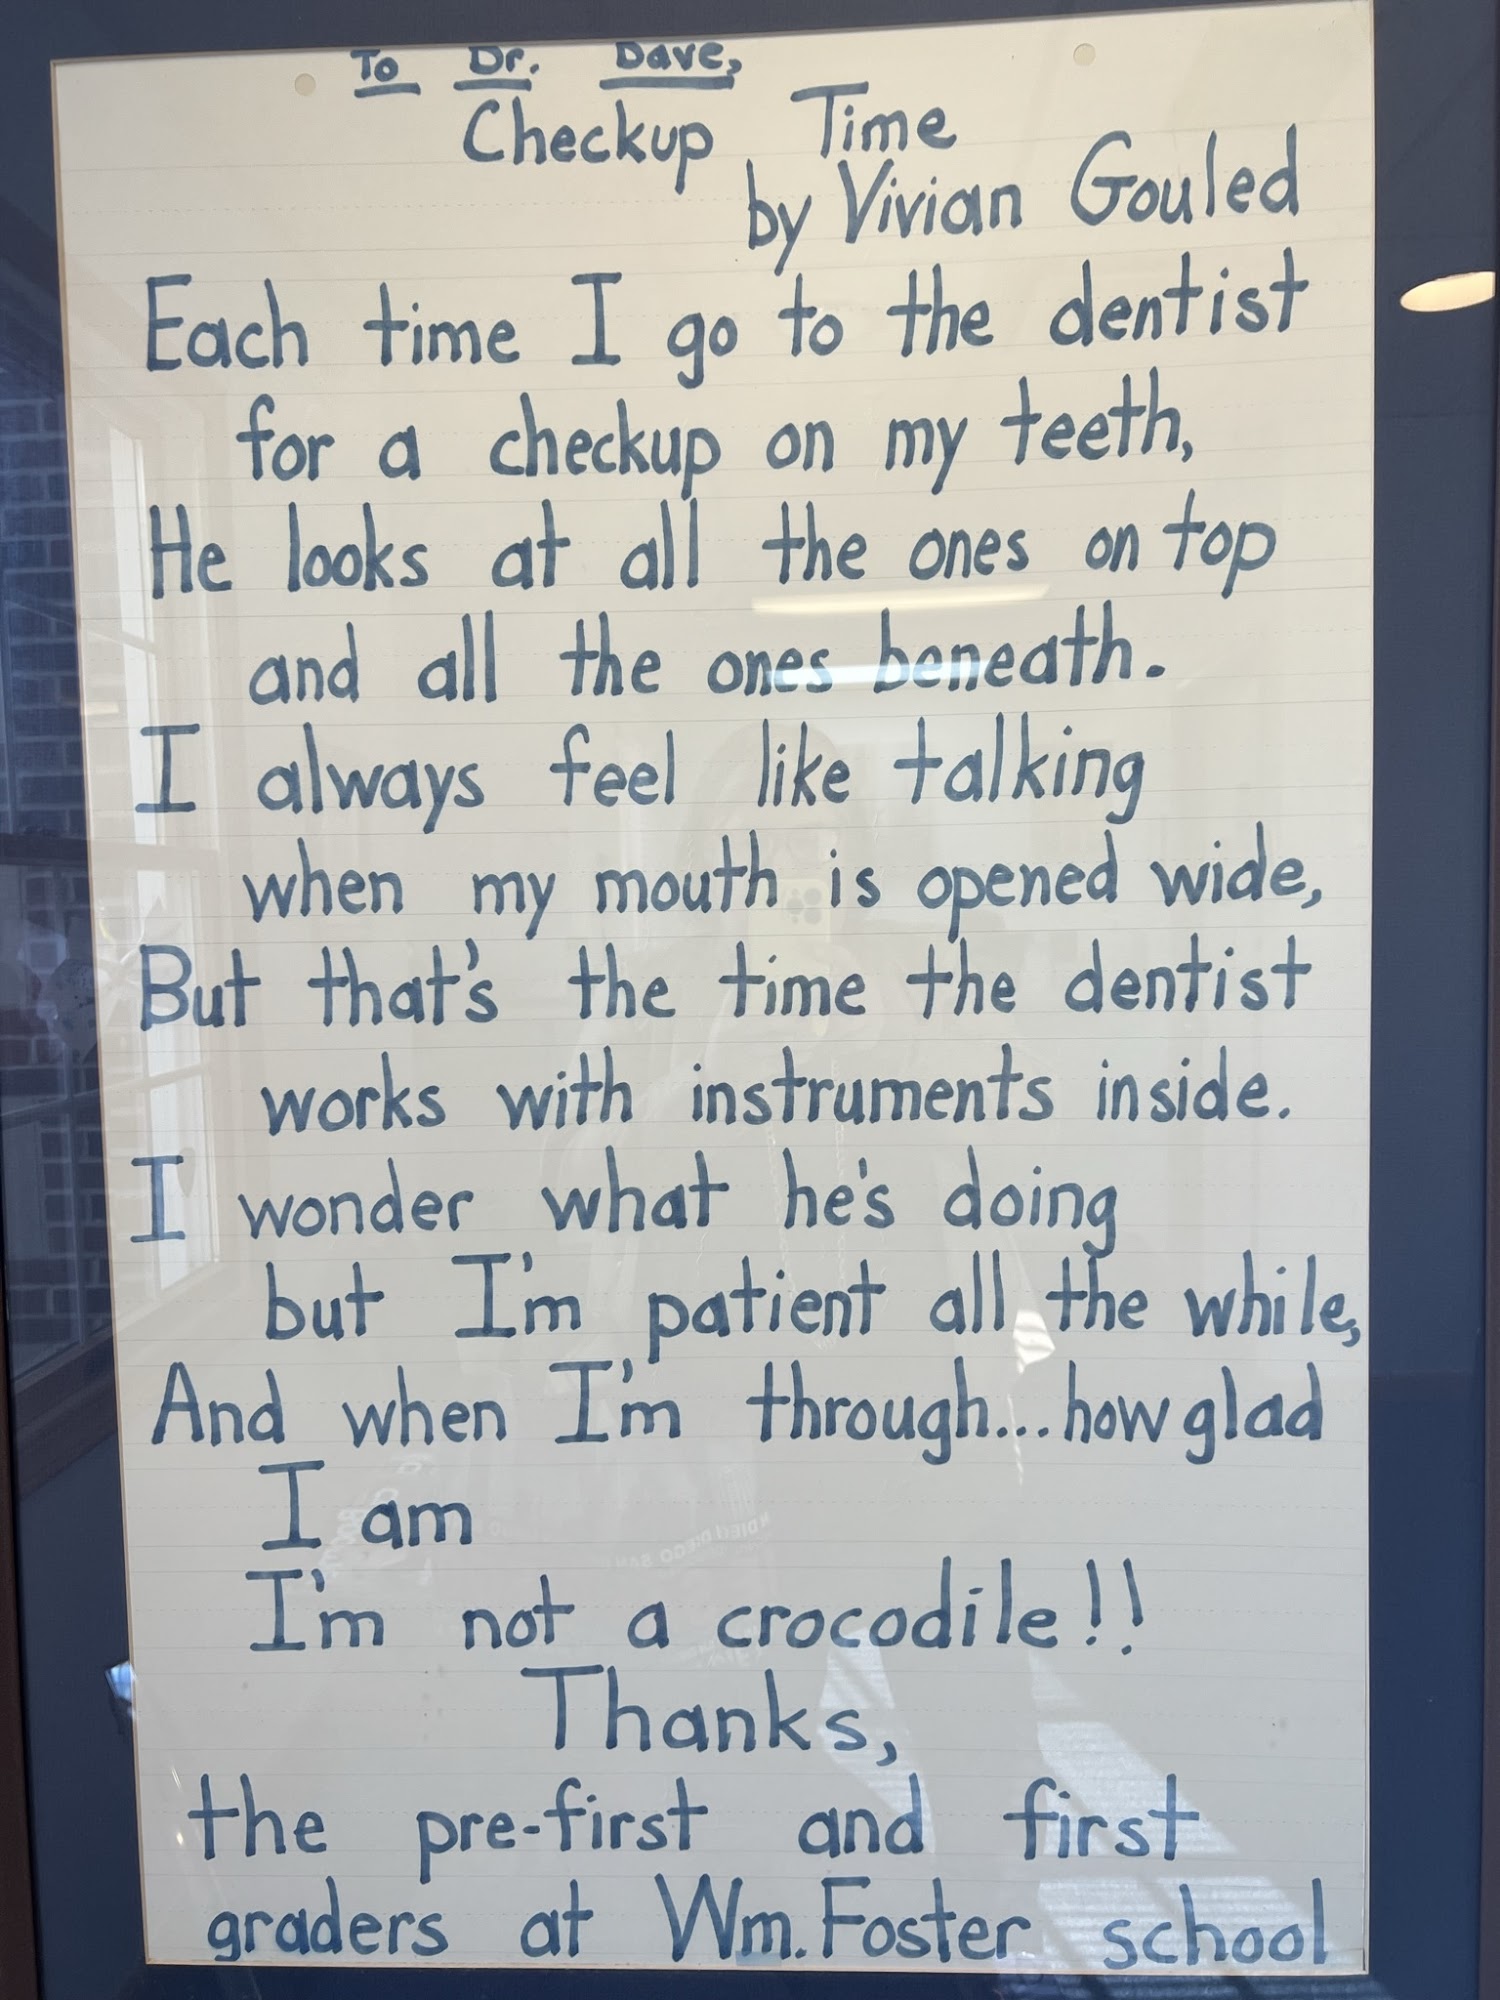 To Dr. Dave,
Checkup Time
by Vivian Gouled
Each time I go to the dentist
for a checkup on my teeth,
He looks at all the ones on top
and all the ones beneath.
I always feel like talking
when my mouth is opened wide,
But that's the time the dentist
works with instruments inside.
I wonder what he's doing
but I'm patient all the while,
And when I'm through...how glad
I am
I'm not a crocodile!!
Thanks,
the pre-first and first
graders at Wm. Foster school